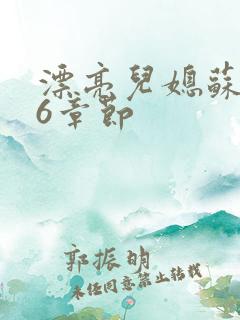 漂亮兒媳蘇
6章節
郭振明
未经同意禁止转载